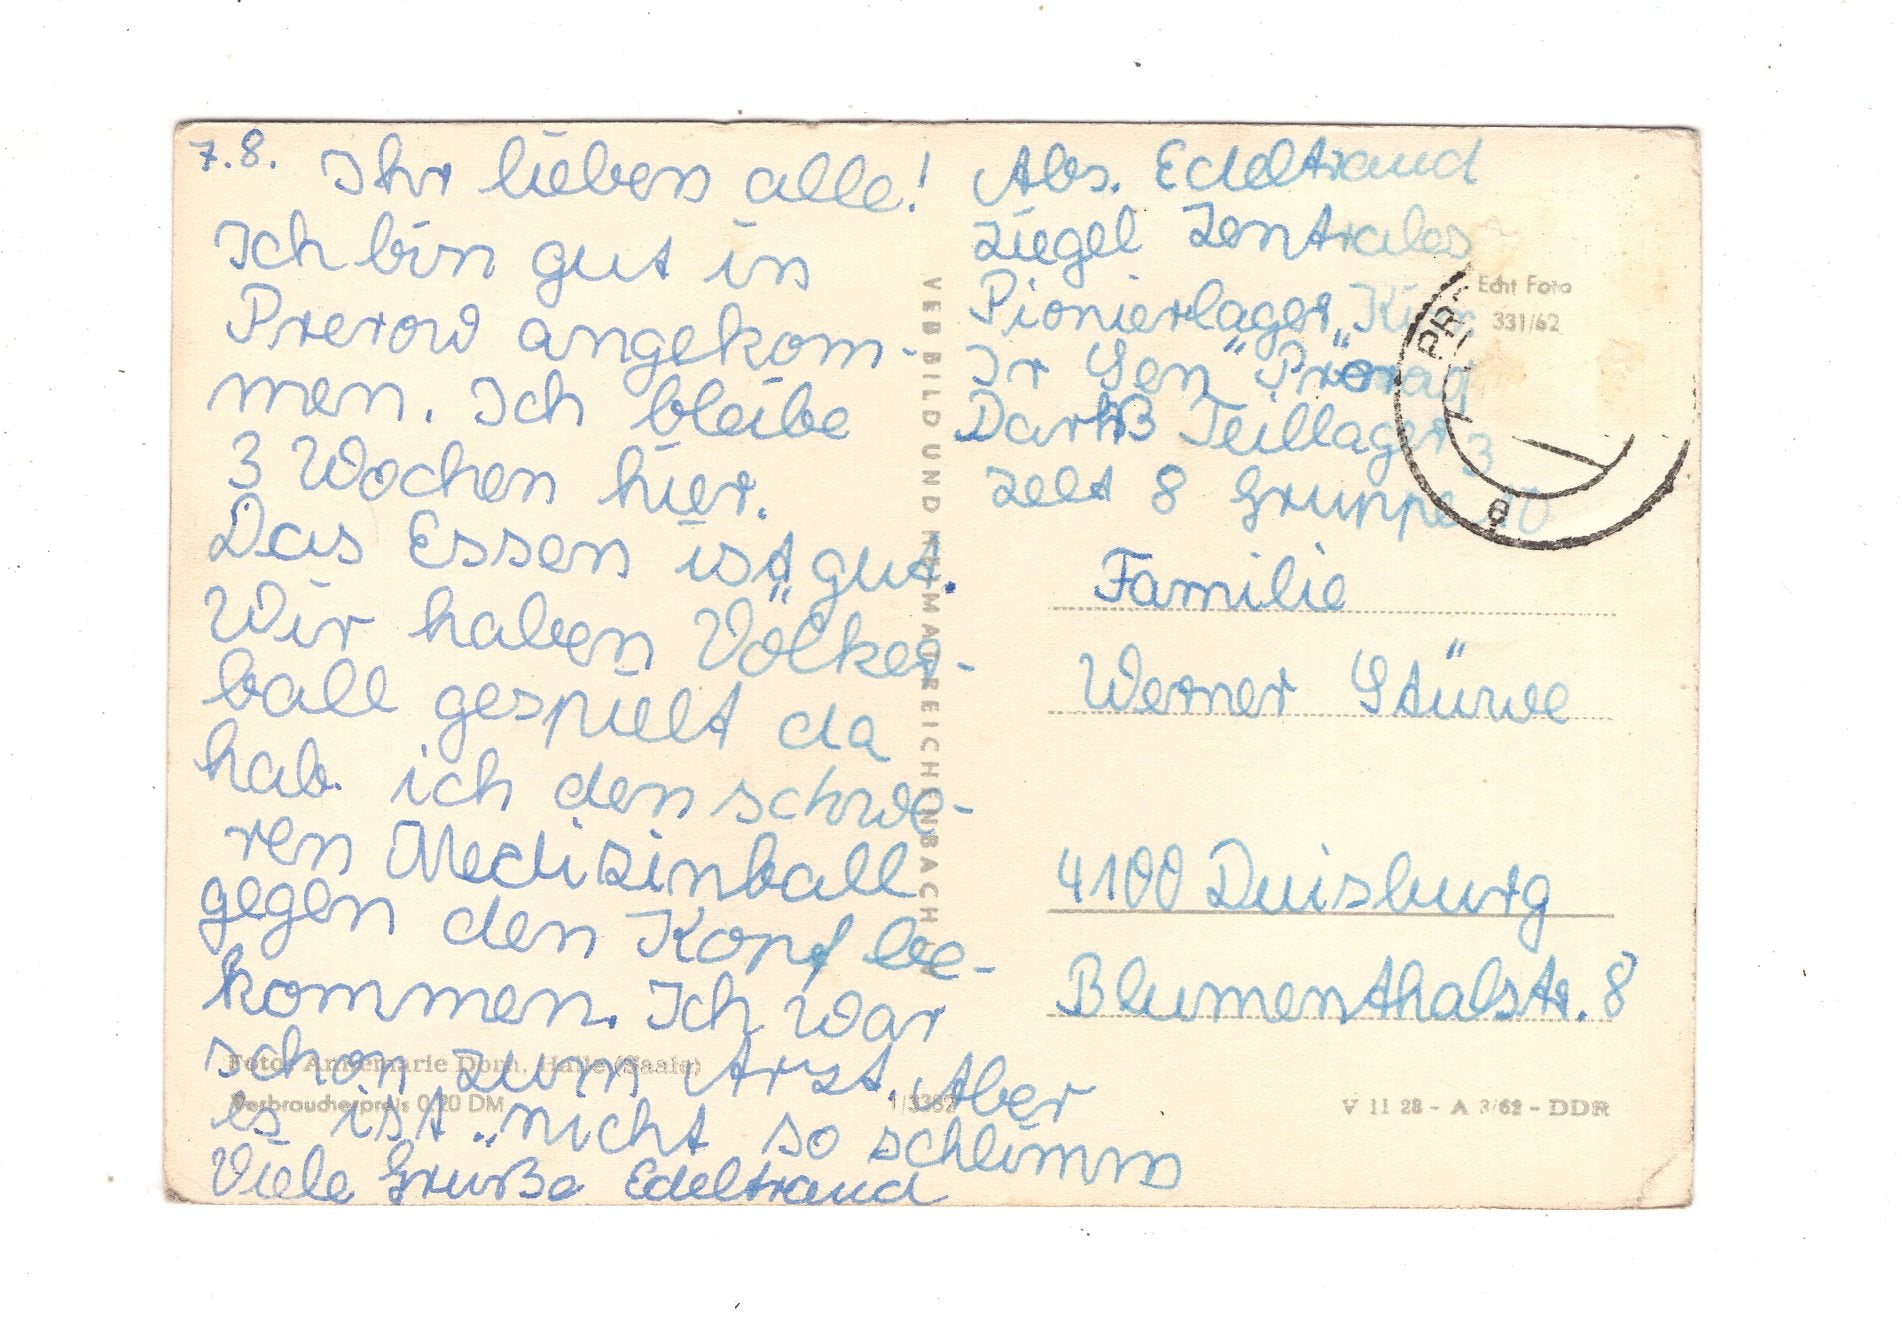 7.8. Ihr lieben alle!
Ich bin gut in
Prerow angekom-
men. Ich bleibe
3 Wochen hier.
Das Essen ist gut.
Wir haben Völker-
ball gespielt da
hab. ich den schwe-
ren Medizinball
gegen den Kopf be-
kommen. Ich war
schon zum Arzt. Aber
es ist nicht so schlimm
Viele Grüße Edeltraud
Foto: Annemarie Dorn, Halle (Saale)
Verbraucherpreis 0,20 DM
1/3382
VEB BILD UND HEIMAT REICHENBACH
Abs. Edeltraud
Ziegel Zentrales
Pionierlager „Kim
Ir Sen"
Darß Teillager 3
Zelt 8 Gruppe 10
Echt Foto
331/62
PR
e
Familie
Werner Stüwe
4100 Duisburg
Blumenthalstr. 8
V 11 28 - A 3/62 - DDR